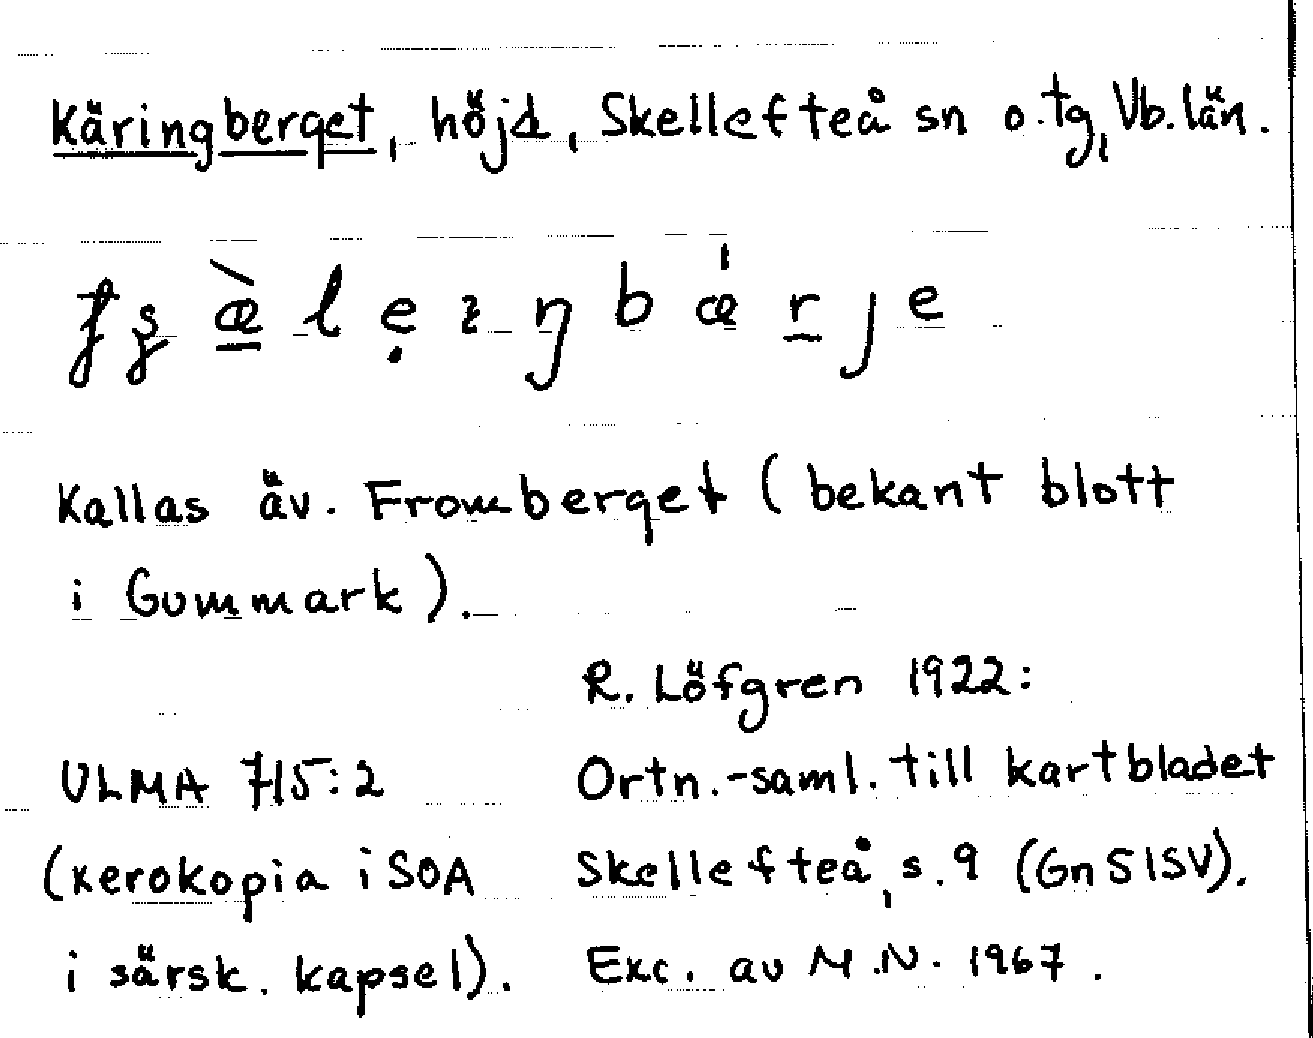 Käringberget, höjd, Skellefteå sn o. tg, Vb. län.
Kallas äv. Fromberget (bekant blott
i Gummark).
R. Löfgren 1922:
ULMA 715:2 Ortn.-saml. till kartbladet
(xerokopia i SOA Skellefteå, s. 9 (Gn SISV).
i särsk. kapsel). Exc. av M.N. 1967.